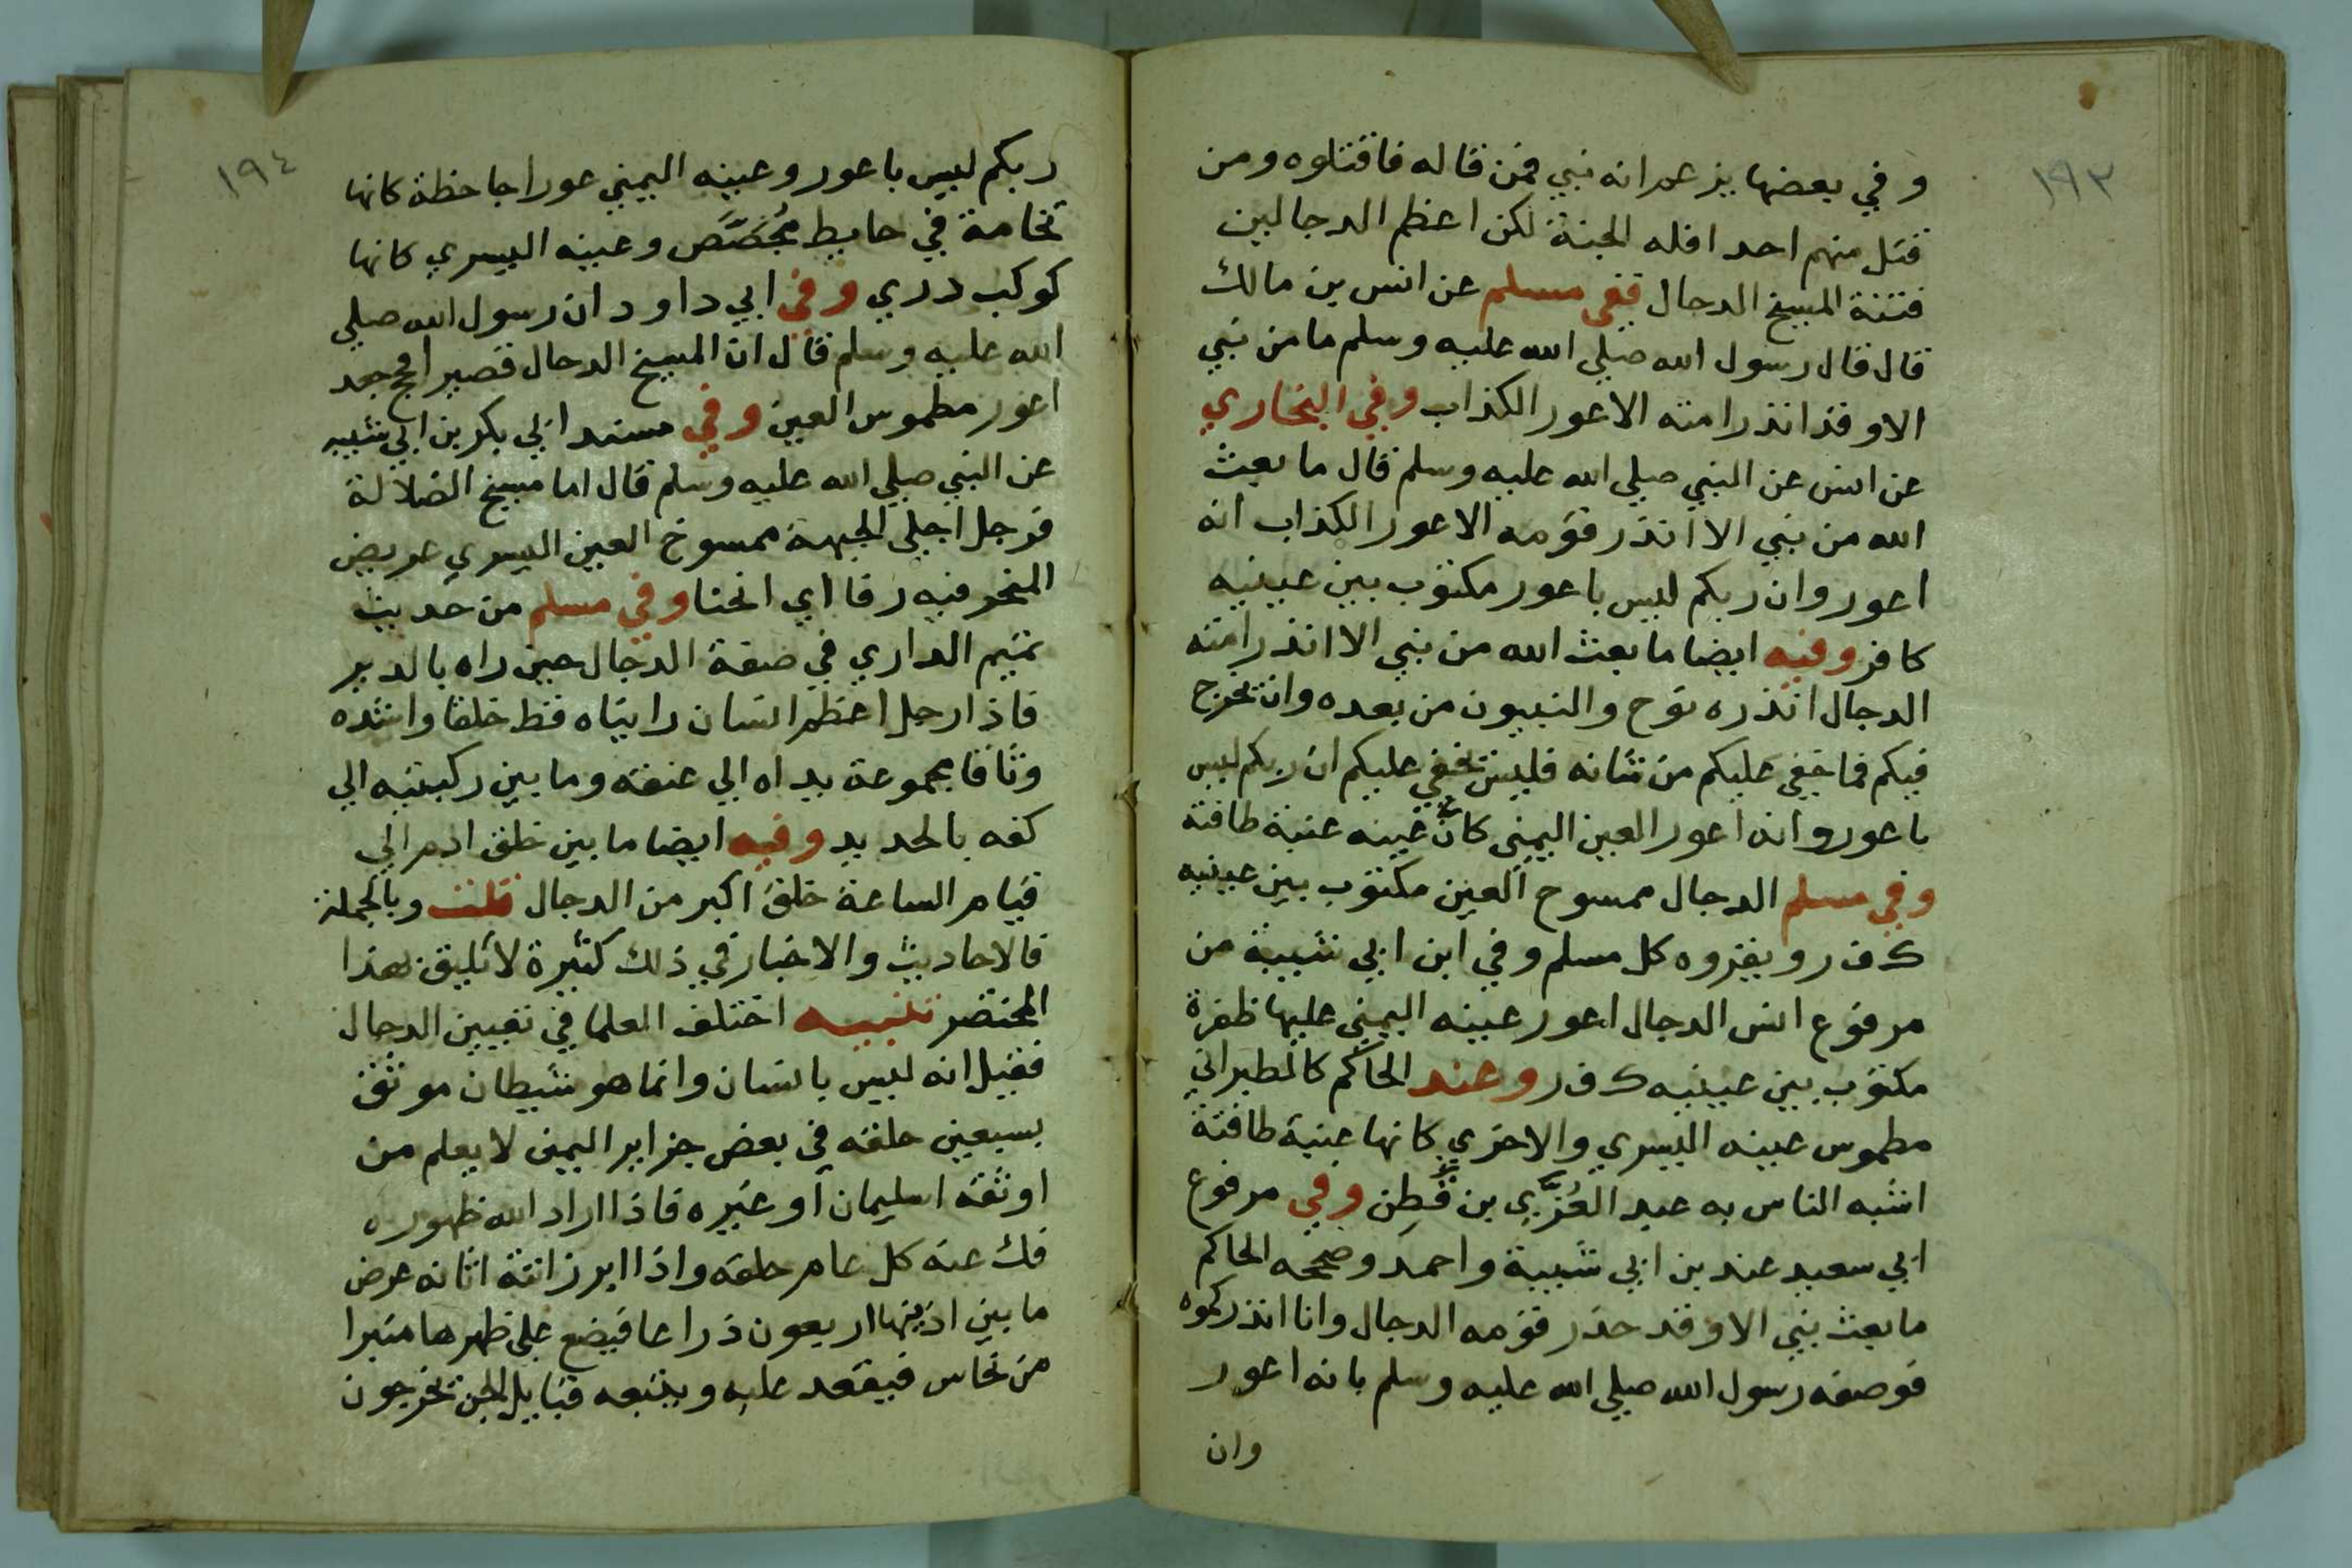 ١٩٣
وفي بعضها يزعم انه نبي فمن قاله فاقتلوه ومن
قتل منهم احدا فله الجنة لكن اعظم الدجالين
فتنة المسيخ الدجال ففي مسلم عن انس بن مالك
قال قال رسول الله صلي الله عليه وسلم ما من نبي
الا وقد انذر امته الاعور الكذاب وفي البخاري
عن انس عن النبي صلي الله عليه وسلم قال ما بعث
الله من نبي الا انذر قومه الاعور الكذاب انه
اعور وان ربكم ليس باعور مكتوب بين عينيه
كافر وفيه ايضا ما بعث الله من نبي الا انذر امته
الدجال انذره نوح والنبيون من بعده وان يخرج
فيكم فما خفي عليكم من شانه فليس يخفي عليكم ان ربكم ليس
باعور وانه اعور العين اليمني كان عينه عنبة طافئة
وفي مسلم الدجال ممسوح العين مكتوب بين عينيه
ك ف ر ويقروه كل مسلم وفي ابن ابي شيبة من
مرفوع انس الدجال اعور عينه اليمني عليها ظفرة
مكتوب بين عينيه ك ف ر وعند الحاكم كالطبراني
مطموس عينه اليسري والاخري كانها عنبة طافئة
اشبه الناس به عبد العُزَّي بن قَطَن وفي مرفوع
ابي سعيد عند بن ابي شيبة واحمد وصححه الحاكم
ما بعث نبي الا وقد حذر قومه الدجال وانا انذركموه
فوصفه رسول الله صلي الله عليه وسلم بانه اعور
وان
١٩٤
ربكم ليس باعور وعينه اليمني عورا جاحظة كانها
نخامة في حايط مُجَصَّص وعينه اليسري كانها
كوكب دري وفي ابي داود ان رسول الله صلي
الله عليه وسلم قال ان المسيخ الدجال قصير افحج جعد
اعور مطموس العين وفي مسند ابي بكر بن ابي شيبه
عن النبي صلي الله عليه وسلم قال اما مسيخ الضلالة
فرجل اجلي الجبهة ممسوخ العين اليسري عريض
المنخر فيه دفا اي انحنا وفي مسلم من حديث
تميم الداري في صفة الدجال حين راه بالدير
فاذا رجل اعظم انسان رايناه قط خلقا واشده
وثاقا مجموعة يداه الي عنقه وما بين ركبتيه الي
كفه بالحديد وفيه ايضا ما بين خلق ادم الي
قيام الساعة خلق اكبر من الدجال قلت وبالجملة
فالاحاديث والاخبار في ذلك كثيرة لا تليق بهذا
المختصر تنبيه اختلف العلما في تعيين الدجال
فقيل انه ليس بانسان وانما هو شيطان موثق
بسبعين حلقه في بعض جزاير اليمن لا يعلم من
اوثقه اسليمان او غيره فاذا اراد الله ظهوره
فك عنه كل عام حلقه واذا ابرز اتته اتانه عرض
ما بين اذنيها اربعون ذراعا فيضع علي ظهرها منبرا
من نحاس فيقعد عليه ويتبعه قبايل الجن يخرجون